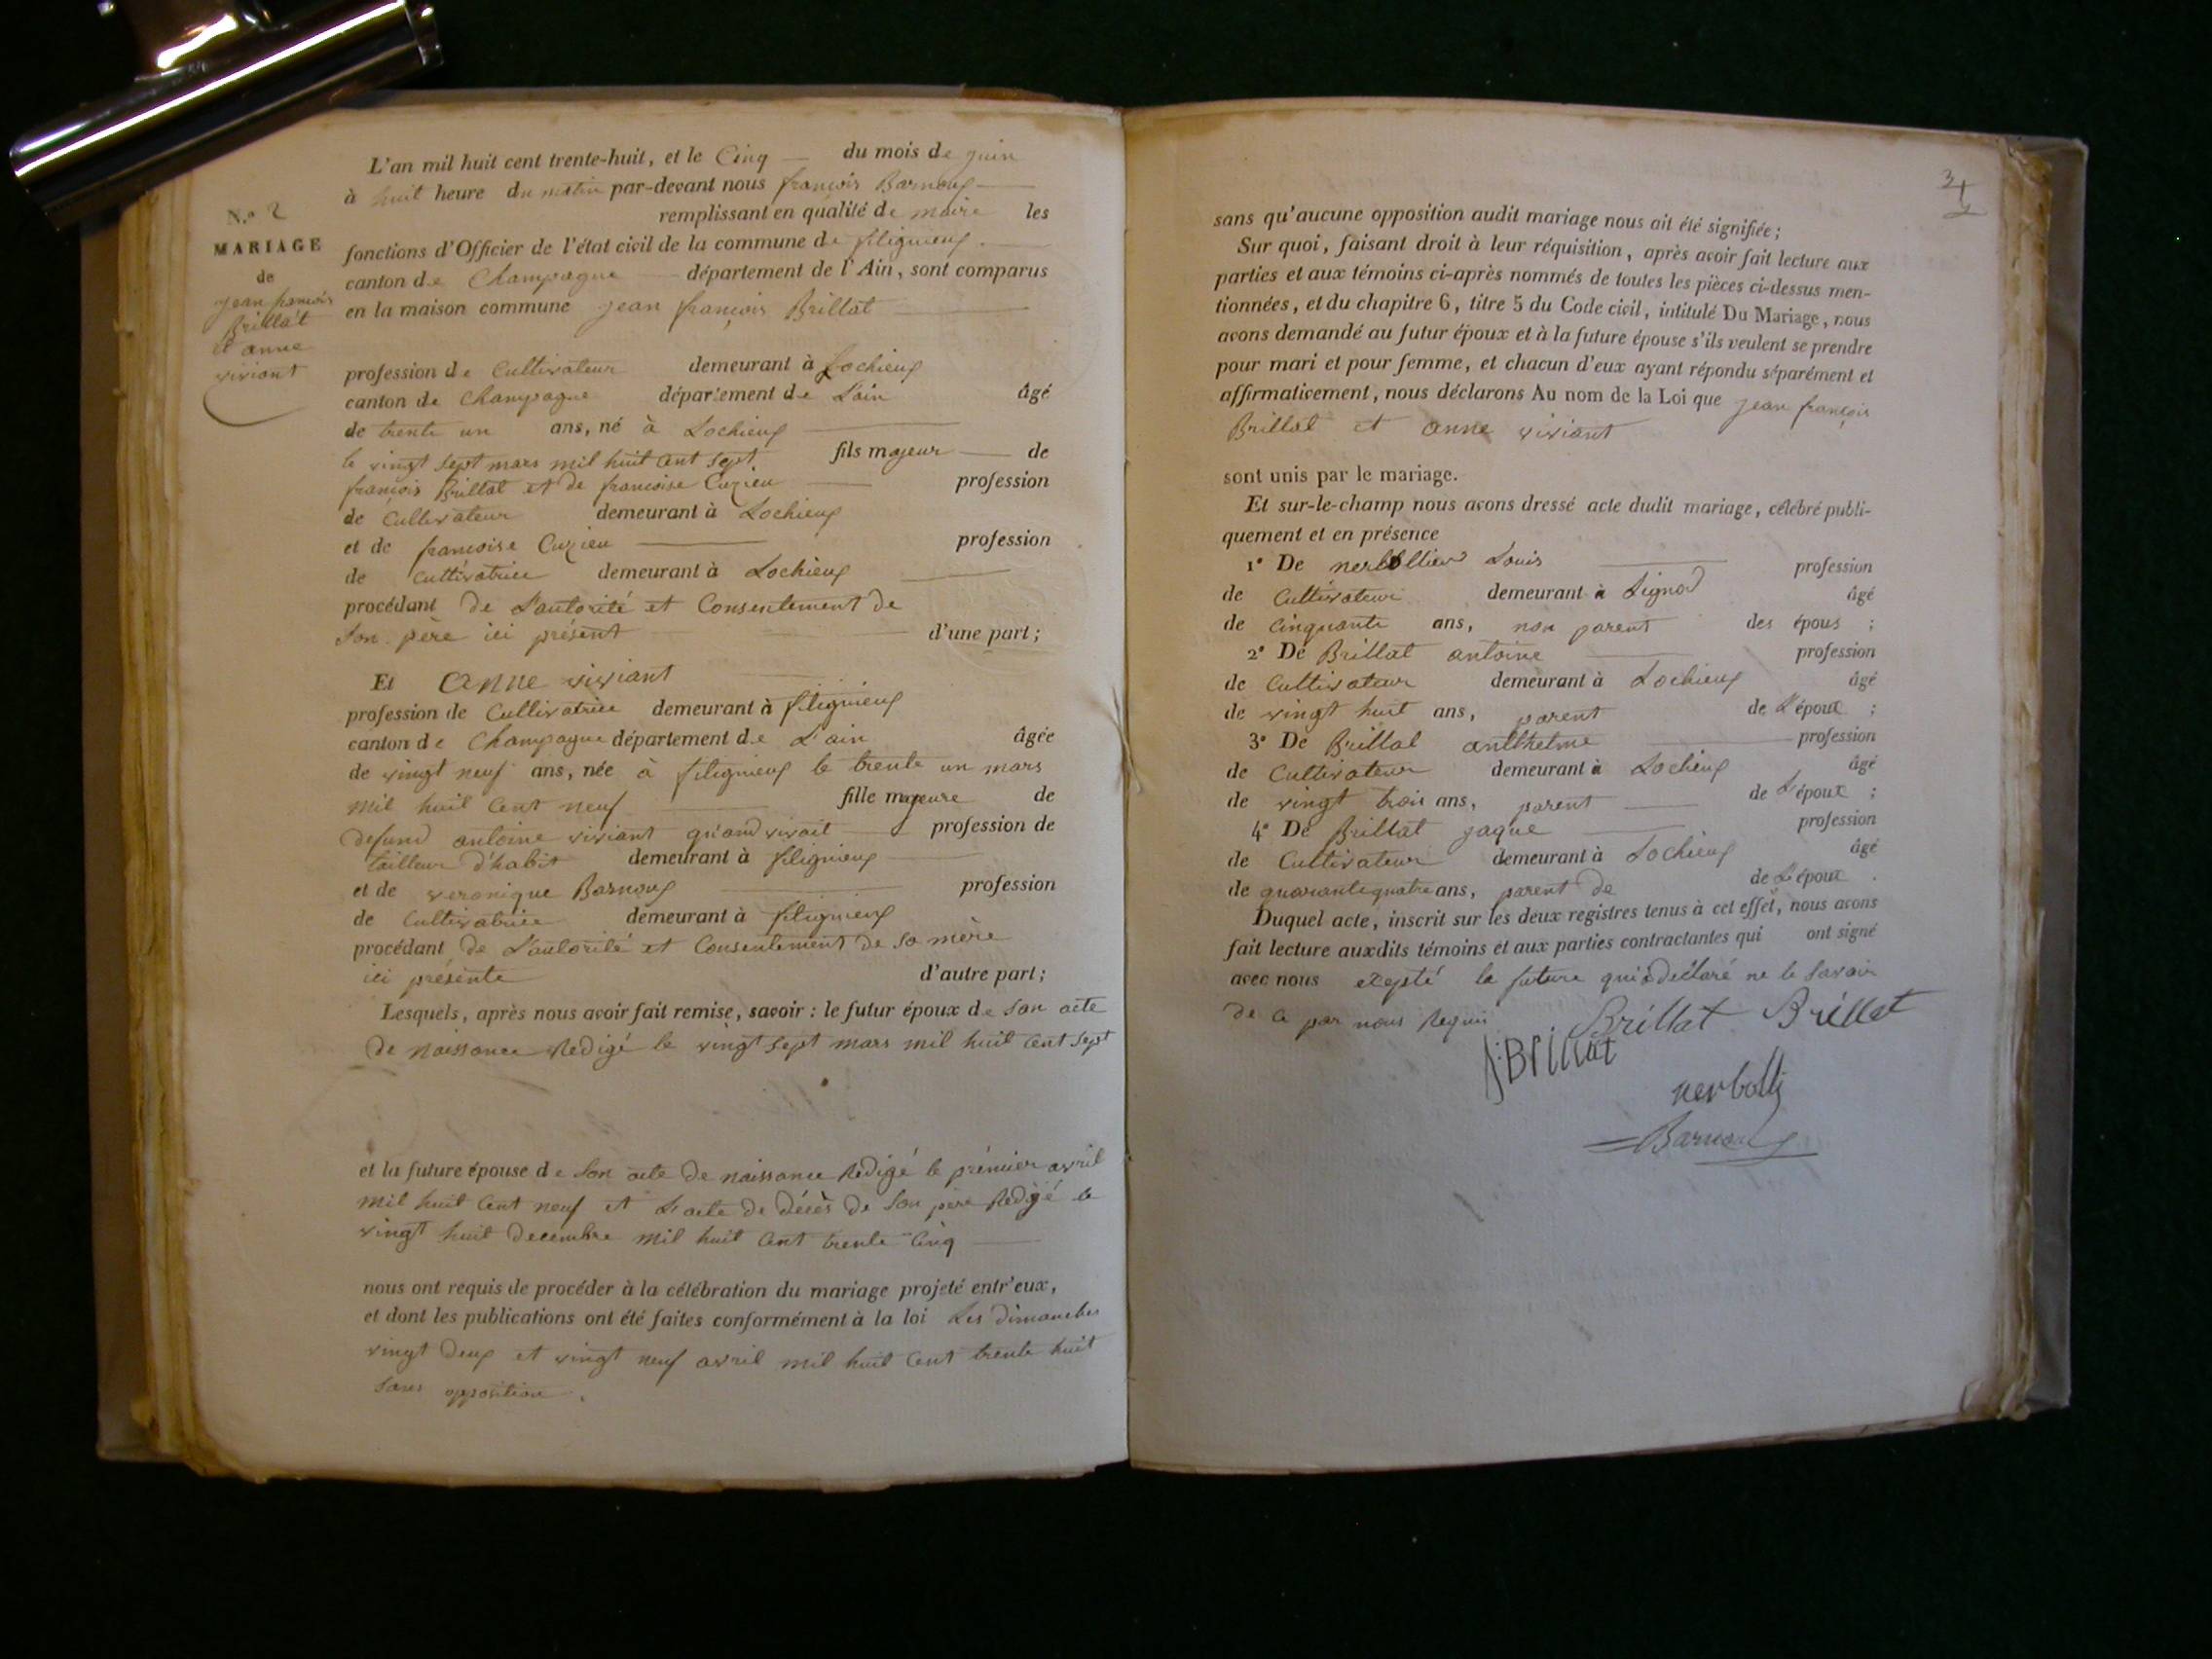 N.º 2
MARIAGE
de
jean françois
Brillat
et anne
viviant
L'an mil huit cent trente-huit, et le Cinq du mois de juin
à huit heure du matin par-devant nous françois Barnoux
remplissant en qualité de maire les
fonctions d'Officier de l'état civil de la commune de fitignieux.
canton de Champagne département de l'Ain, sont comparus
en la maison commune jean françois Brillat
profession de Cultivateur demeurant à Lochieux
canton de Champagne département de L'ain âgé
de trente un ans, né à Lochieux
le vingt sept mars mil huit cent sept fils majeur de
françois Brillat et de francoise Cuzieu profession
de Cultivateur demeurant à Lochieux
et de francoise Cuzieu profession
de Cultivatrice demeurant à Lochieux
procédant de L'autorité et Consentement de
son père ici présent d'une part;
Et anne viviant
profession de Cultivatrice demeurant à fitignieux
canton de Champagne département de L'ain âgée
de vingt neuf ans, née à fitignieux le trente un mars
mil huit Cent neuf fille majeure de
defund antoine viviant quand vivait profession de
tailleur d'habit demeurant à fitignieux
et de veronique Barnoux profession
de Cultivatrice demeurant à fitignieux
procédant de L'autorité et Consentement de sa mère
ici présente d'autre part;
Lesquels, après nous avoir fait remise, savoir : le futur époux de son acte
de naissance Redigé le vingt sept mars mil huit Cent sept
et la future épouse de son acte de naissance Redigé le prémier avril
mil huit Cent neuf et L'acte de décès de son père Redigé le
vingt huit decembre mil huit Cent trente Cinq
nous ont requis de procéder à la célébration du mariage projeté entr'eux,
et dont les publications ont été faites conformément à la loi Les dimanches
vingt deux et vingt neuf avril mil huit Cent trente huit
sans opposition.
sans qu'aucune opposition audit mariage nous ait été signifiée;
Sur quoi, faisant droit à leur réquisition, après avoir fait lecture aux
parties et aux témoins ci-après nommés de toutes les pièces ci-dessus men-
tionnées, et du chapitre 6, titre 5 du Code civil, intitulé Du Mariage, nous
avons demandé au futur époux et à la future épouse s'ils veulent se prendre
pour mari et pour femme, et chacun d'eux ayant répondu séparément et
affirmativement, nous déclarons Au nom de la Loi que jean françois
Brillat et anne viviant
sont unis par le mariage.
Et sur-le-champ nous avons dressé acte dudit mariage, célébré publi-
quement et en présence
1º De Louis profession
de Cultivateur demeurant à Lignod âgé
de Cinquante ans, non parent des épous ;
2º De Brillat antoine profession
de Cultivateur demeurant à Lochieux âgé
de vingt huit ans, parent de L'époux ;
3º De Brillat antthelme profession
de Cultivateur demeurant à Lochieux âgé
de vingt trois ans, parent de L'époux ;
4º De Brillat jaque profession
de Cultivateur demeurant à Lochieux âgé
de quarante quatre ans, parent de de L'époux .
Duquel acte, inscrit sur les deux registres tenus à cet effet, nous avons
fait lecture auxdits témoins et aux parties contractantes qui ont signé
avec nous exepté la future qui a déclaré ne le savoir
de ce par nous Requis
Brillat Brillat
Brillat
Barnoux